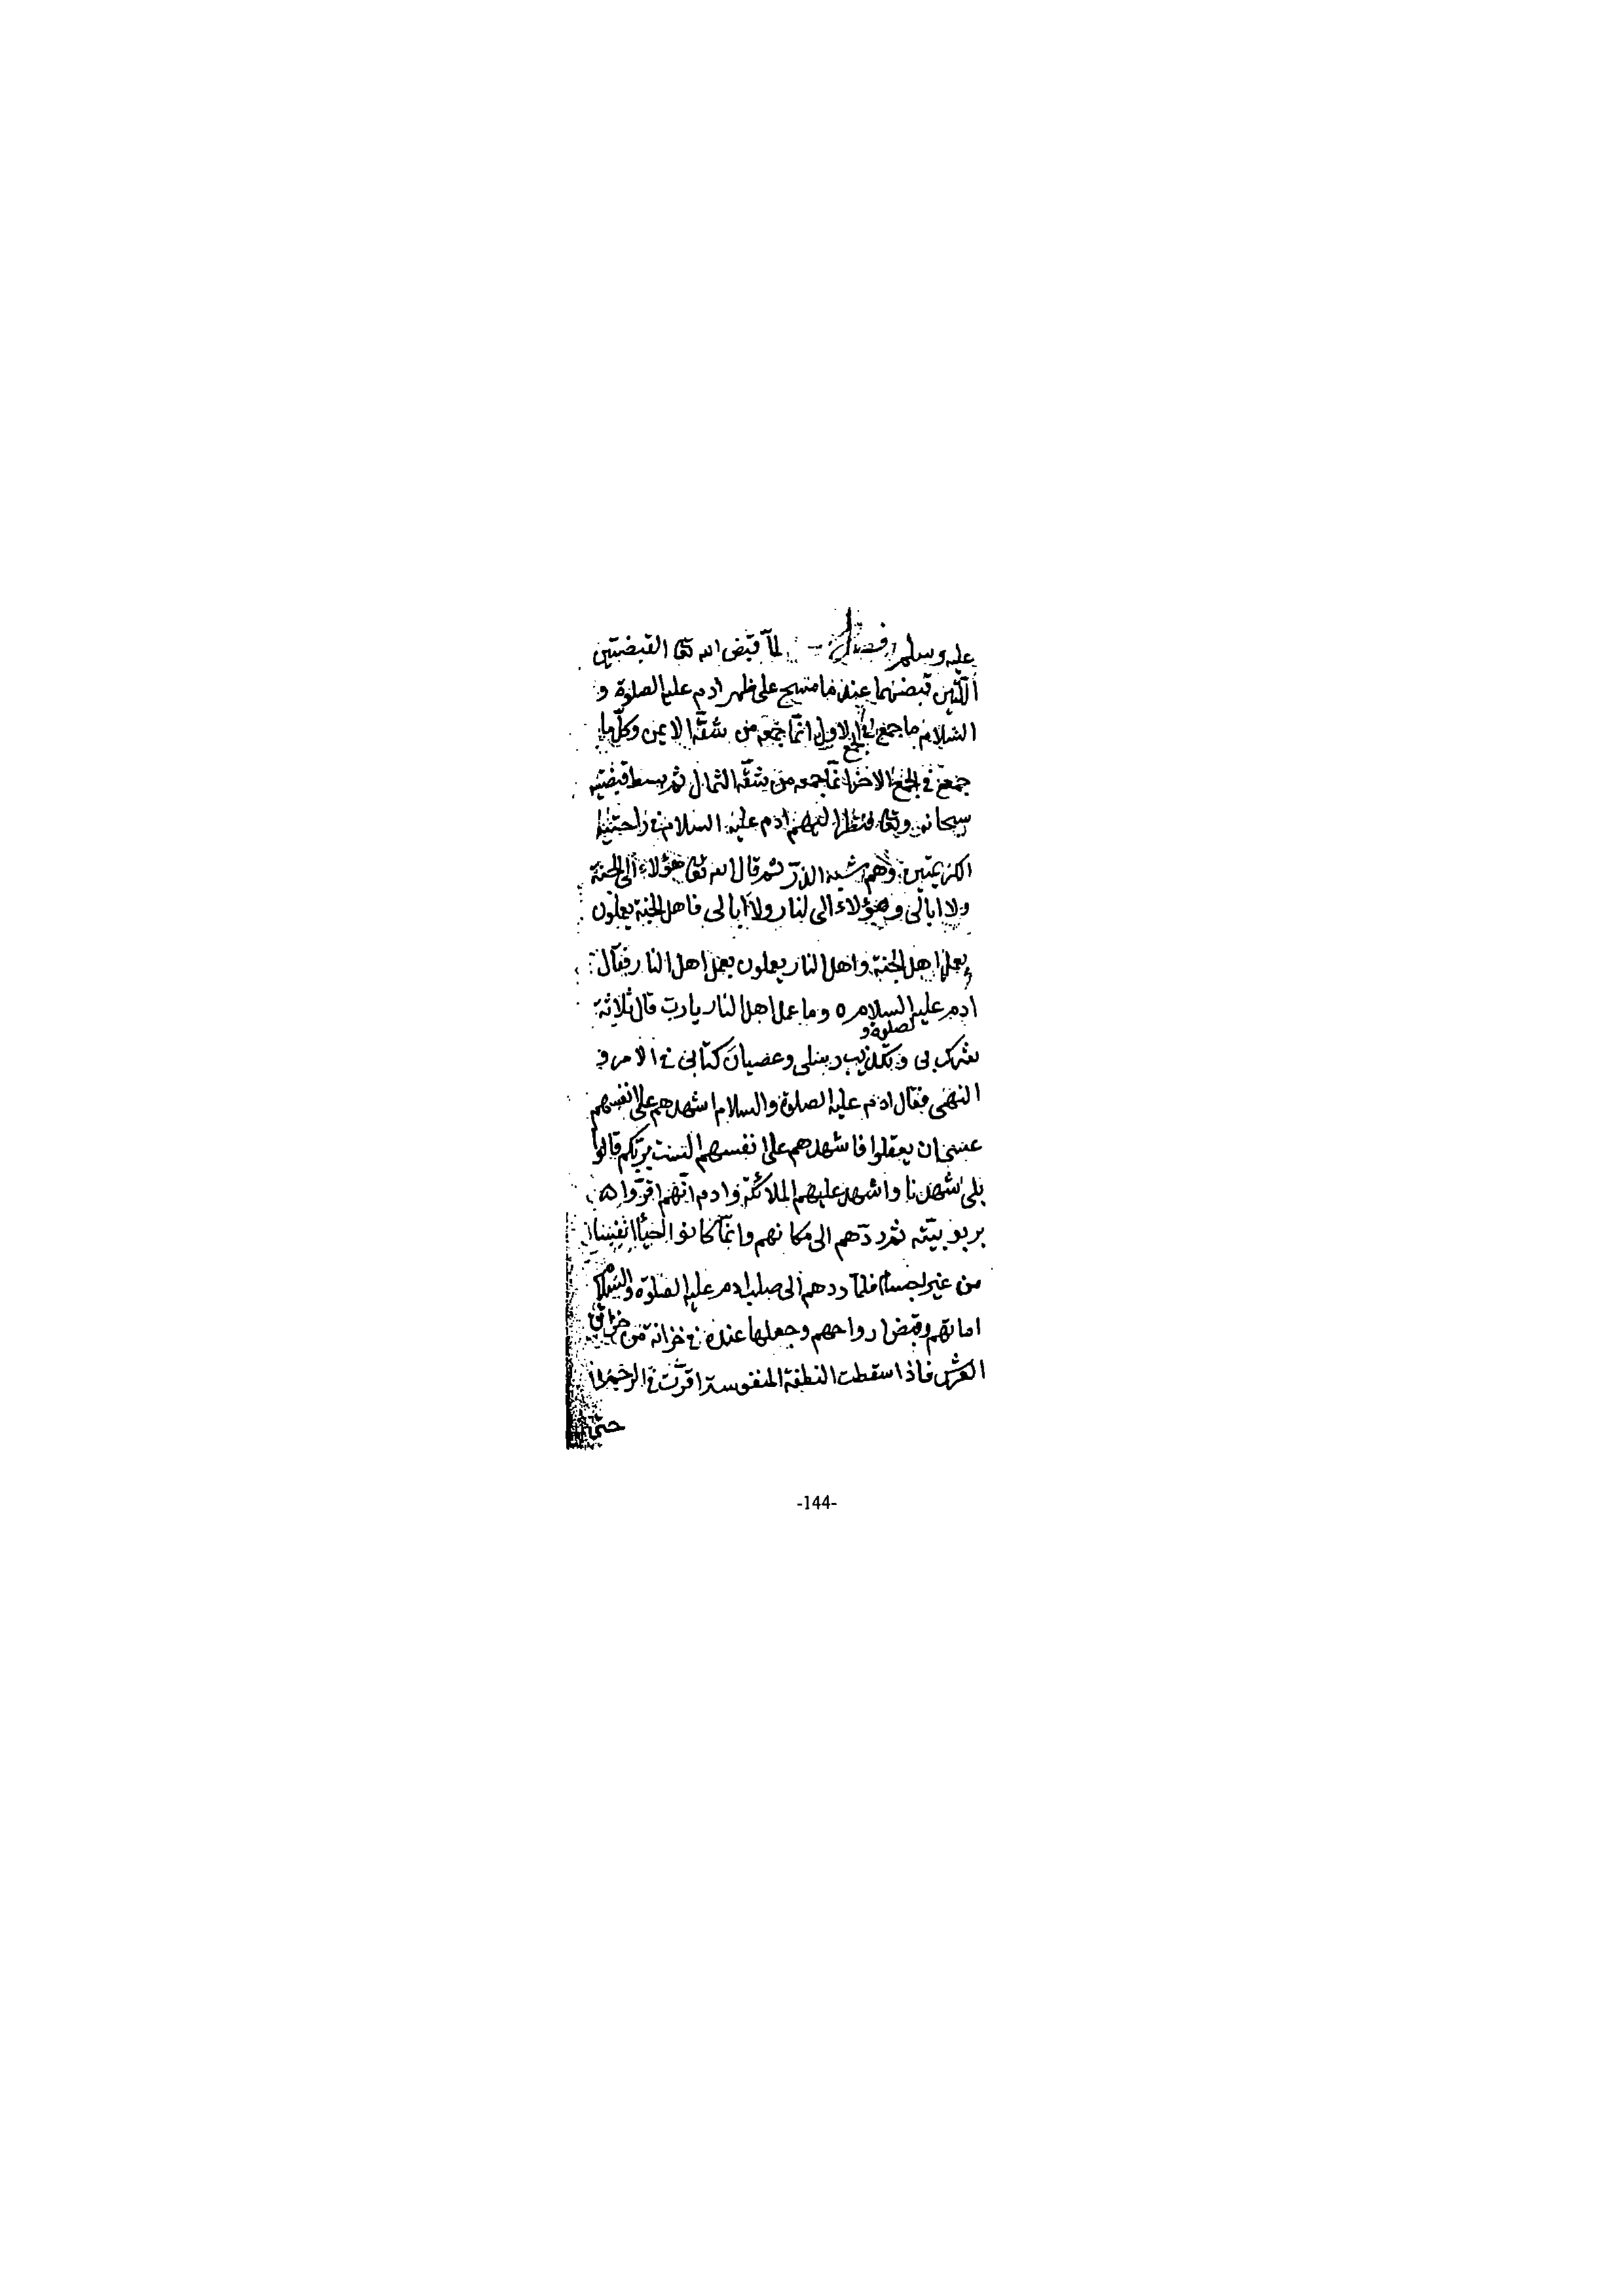 عليه وسلم فصل لمّا قبض الله تعا القبضتين
اللّتين قبضهما عند ما مسح على ظهر ادم عليه الصلوة و
السّلام ما جمع فى الجمع الاول انّما جمعه من شقّه الايمن وكلّ ما
جمعه فى الجمع الاخر انّما جمعه من شقّه الشمال ثم بسط قبضتيه
سبحانه وتعا فنظر اليهم ادم عليه السلام فى راحتيه
الكريمتين وهم شبه الذرّ ثم قال الله تعا هؤلاء الى الجنة
ولا ابالى وهؤلاء الى النار ولا ابالى فاهل الجنة يعملون
بعمل اهل الجنة واهل النار يعملون بعمل اهل النار فقال
ادم عليه الصلوة و السلام وما عمل اهل النار يا ربّ قال ثلاثة
شرك بى وتكذيب رسلى وعصيان كتابى فى الامر و
النهى فقال ادم عليه الصلوة والسلام اشهدهم على انفسهم
عسى ان يعقلوا فاشهدهم على انفسهم الست بربّكم قالوا
بلى شهدنا واشهد عليهم الملائكة وادم انّهم اقرّوا
بربوبيّته ثم ردّهم الى مكانهم وانّما كانوا احياء انفسا
من غير اجسام فلمّا ردهم الى صلب ادم عليه الصلوة والسّلام
اماتهم وقبض ارواحهم وجعلها عنده فى خزانة من خزائن
العرش فاذا سقطت النطفة المنفوسة اقرّت فى الرحم
حتى
-144-